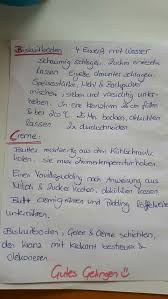 Biskuitboden: 4 Eiweiß mit Wasser
schaumig schlagen. Zucker einrieseln
lassen. Eigelb darunter schlagen.
Speisestärke, Mehl & Backpulver
mischen, sieben und vorsichtig unter-
heben. In eine Kranzform füllen
& bei 200°C Min. backen, abkühlen
lassen. 2x durchschneiden
Creme:
Butter rechtzeitig aus dem Kühlschrank
holen, sie muss Zimmertemperatur haben.
Einen Vanillepudding nach Anweisung aus
Milch & Zucker kochen, abkühlen lassen.
Butter cremig rühren und Pudding löffelweise
unterrühren.
Biskuitboden, Gelee & Creme schichten,
den Kranz mit Krokant bestreuen &
dekorieren.
Gutes Gelingen